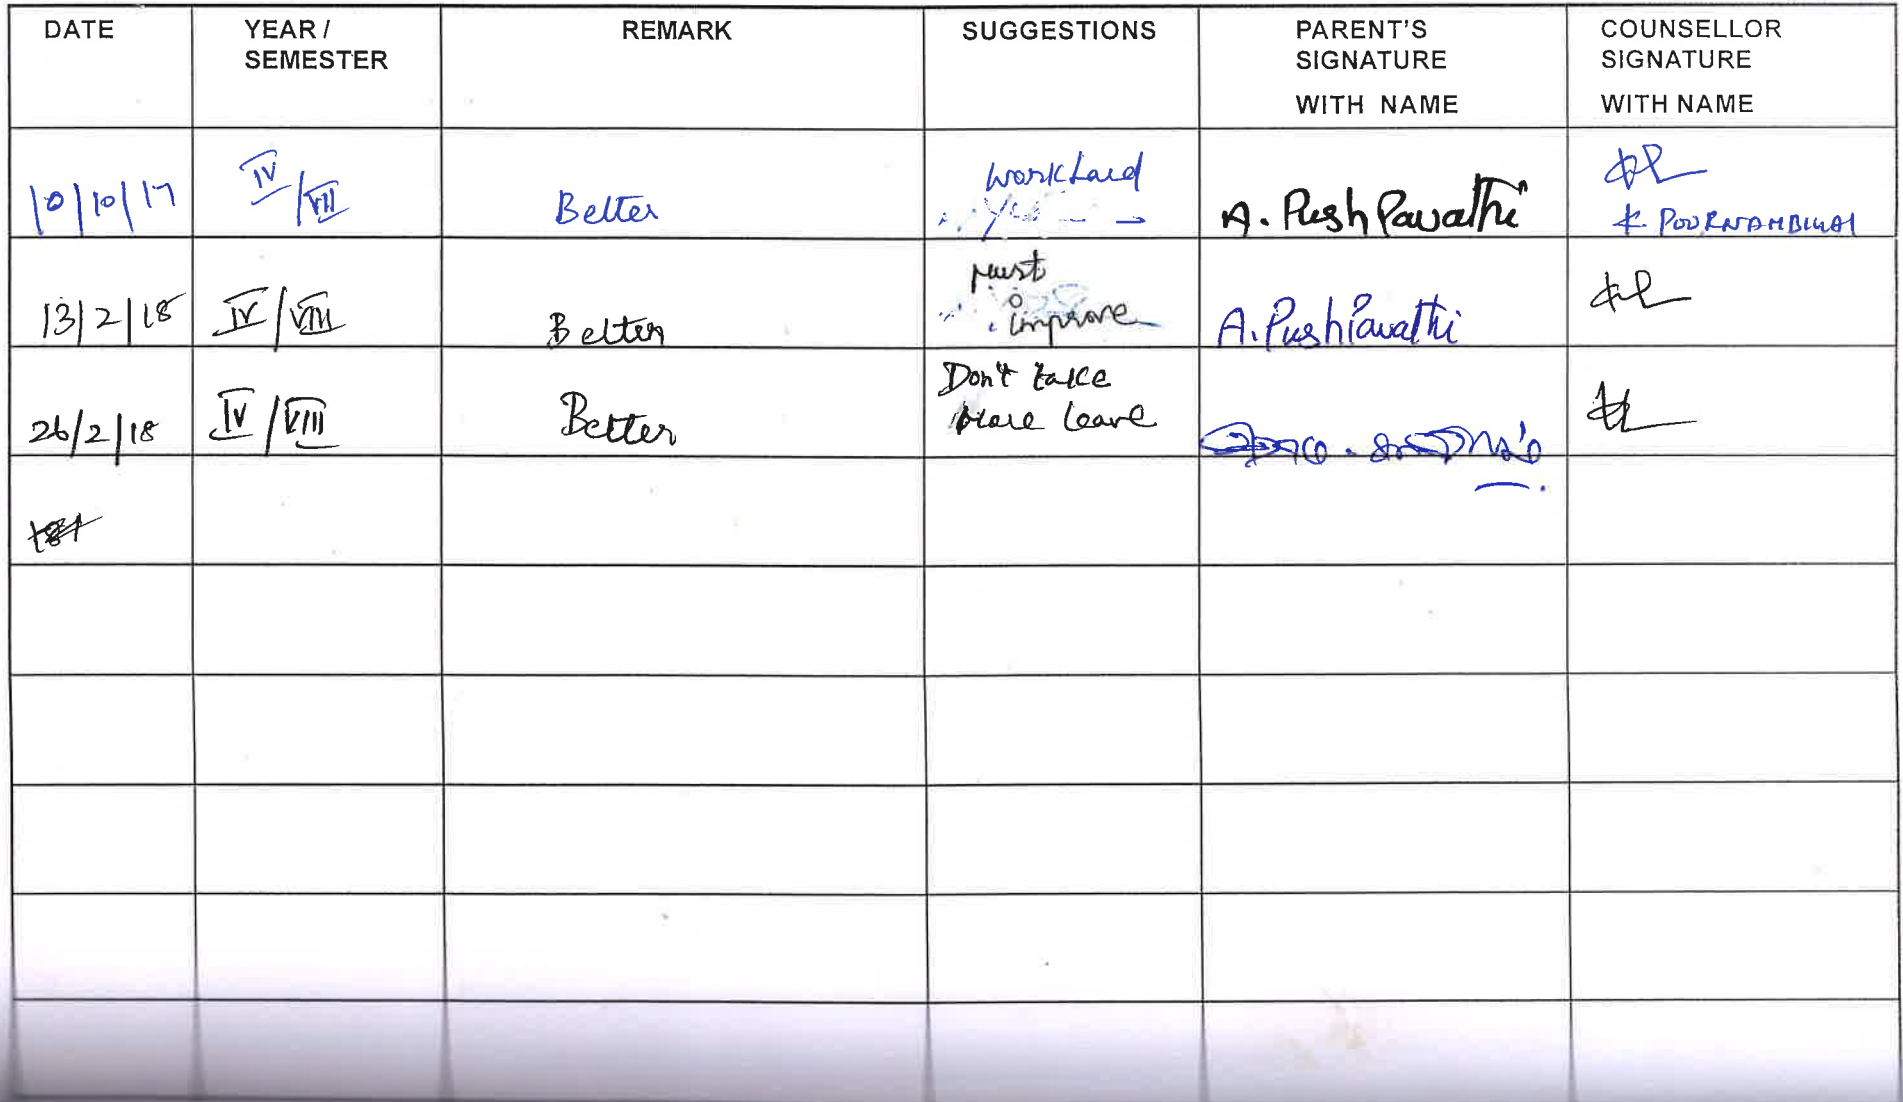 DATE YEAR / SEMESTER REMARK SUGGESTIONS PARENT'S SIGNATURE WITH NAME COUNSELLOR SIGNATURE WITH NAME
10/10/17 IV/VII Better Work hard A. PushPavathi K. POORNAMBIGAI
13/2/18 IV/VIII Better Must improve A. PushPavathi
26/2/18 IV/VIII Better Don't take more leave